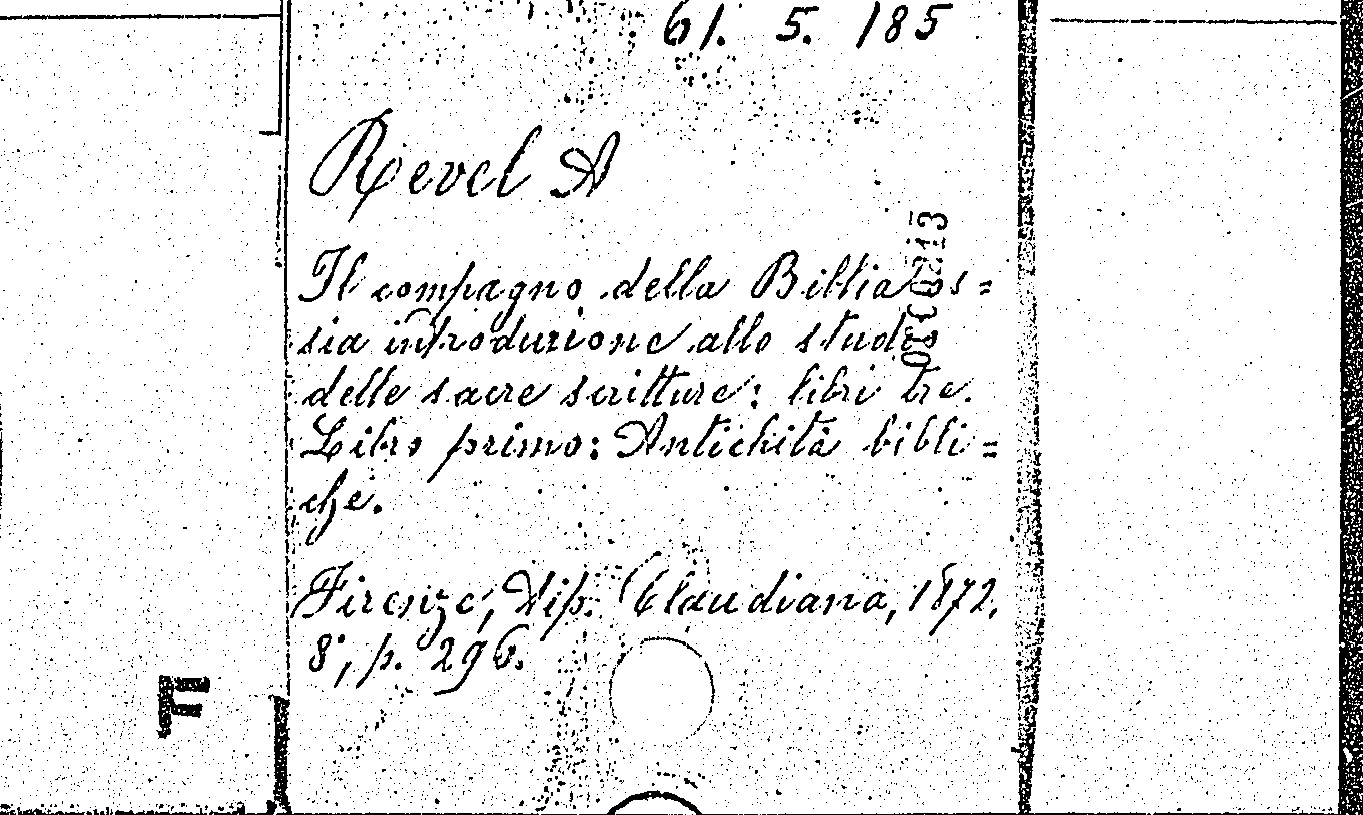 61. 5. 185
Revel A
Il compagno della Bibbia os=
sia introduzione allo studio
delle sacre scritture: libri tre.
Libro primo: Antichità bibli=
che.
Firenze, Tip. Claudiana, 1872.
8°, p. 296.
F